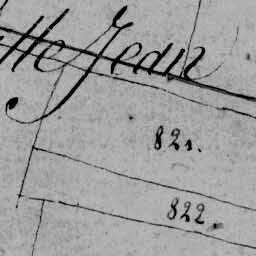 tte Jean
821.
822.